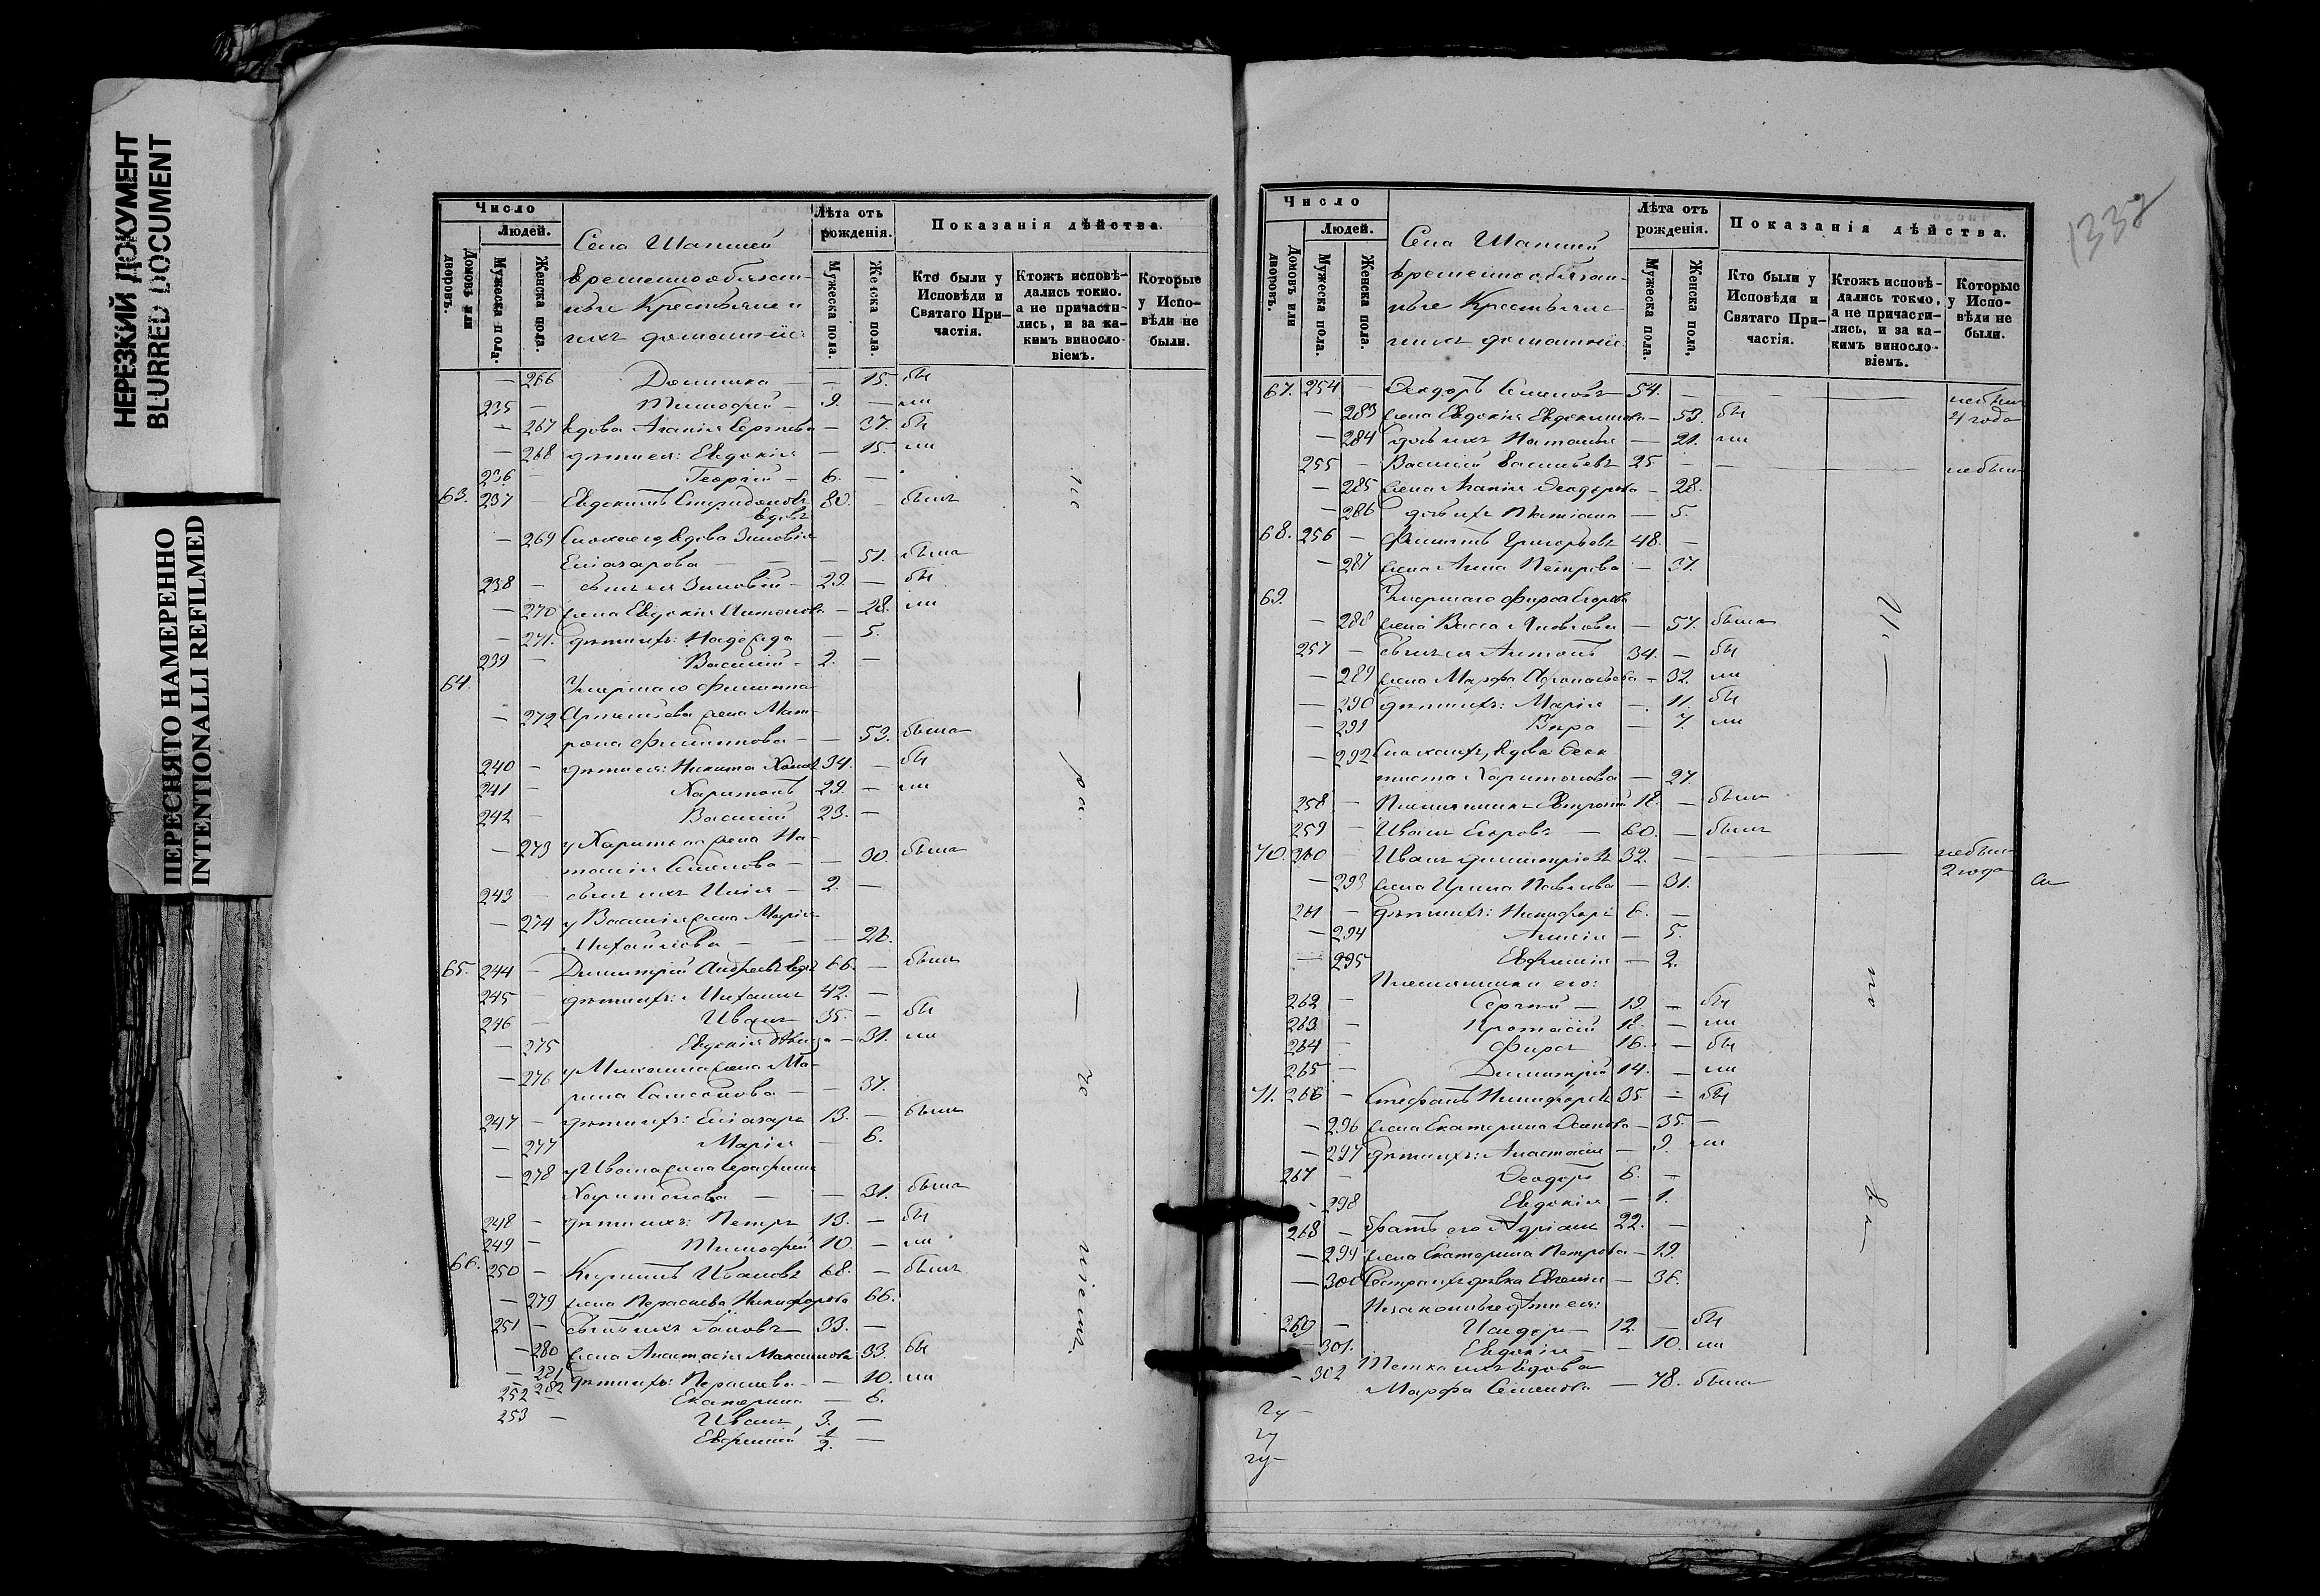 НЕРЕЗКИЙ ДОКУМЕНТ
BLURRED DOCUMENT
ПЕРЕСНЯТО НАМЕРЕННО
INTENTIONALLI REFILMED
Число
Людей.
Домовъ или дворовъ.
Мужеска пола.
Женска пола.
Села
временнообязан-
ные Крестьяне и
ихъ домашніе
Лѣта отъ рожденія.
Мужеска пола.
Женска пола.
Показанія дѣйства.
Кто были у Исповѣди и Святаго При-частія.
Ктожъ исповѣ-дались токмо, а не причасти-лись, и за ка-кимъ винословіемъ.
Которые у Испо-вѣди не были.
— 266 — 15. бы
235 — Тимофей — 9. — ли
— 267 вдова Агапія Сергѣева — 37. бы
— 268 дѣти ея: Евдокія — 15. ли
236 — Георгій — 6. —
63. 237 — Евдокимъ Спиридоновъ 80. — былъ
вдовъ
— 269 вдова Зиновія
Елиазарова — — 51. была
238 — сынъ ея Зиновій — 29. — бы
— 270 жена Евдокія Антонова — 28. ли
— 271. дѣти ихъ: Надежда — 5.
239 — Василій — 2. —
64. Умершаго Филиппа
— 272 жена Мат-
рона Филиппова — — 53. была
240 — дѣти ея: Никита 34. — бы
241 — Харитонъ 29. — ли
242 — Василій 23. —
— 273 у Харитона жена На-
талія Семенова — — 30. была
243 — сынъ ихъ Илія — 2. —
— 274 у Василія жена Марія
Михайлова — — 26.
65. 244 — Димитрій Андреевъ вдовъ 66. — былъ
245 — дѣти ихъ: Михаилъ 42. —
246 — Иванъ — 35. — бы
— 275 Евдокія дѣвица — 31. ли
— 276 у Михаила жена Ма-
рина Самсонова — 37.
247 — дѣти ихъ: Елиазаръ 13. — былъ
— 277 Марія — 6.
— 278 у Ивана жена Серафима
Харитонова — — 31. была
248 — дѣти ихъ: Петръ 13. — бы
249 — Тимофей 10. — ли
66. 250 — Кириллъ Ивановъ 68. — былъ
— 279 жена Парасковья Никифорова 66.
251 — сынъ ихъ Іаковъ 33. —
— 280 жена Анастасія Максимова 33. бы
— 281 дѣти ихъ: — — 10. ли
282 Екатерина — 6.
252 — Иванъ 3. —
253 — Евфимій 1/2. —
Число
Людей.
Домовъ или дворовъ.
Мужеска пола.
Женска пола.
Села
временнообязан-
ные Крестьяне
и ихъ домашніе
Лѣта отъ рожденія.
Мужеска пола.
Женска пола.
Показанія дѣйства.
Кто были у Исповѣди и Святаго При-частія.
Ктожъ исповѣ-дались токмо, а не причасти-лись, и за ка-кимъ винословіемъ.
Которые у Испо-вѣди не были.
1332
67. 254 — Ѳеодоръ Семеновъ 54. — — небылъ
4 года
— 283 жена Евдокія Евдокимова — 53. бы
— 284 дочь ихъ Наталья — 21. ли
255 — Василій Васильевъ 25. — — небылъ
— 285 жена Агапія Ѳеодорова — 28.
— 286 дочь ихъ Татіана — 5.
68. 256 — Филиппъ Григорьевъ 48. —
— 287 жена Анна Петрова — 37.
69. Умершаго Фирса Егорова
— 288 жена Васса Яковлева — 57. была
257 — сынъ ея Антонъ 34. — бы
— 289 жена Марфа — 32. ли
— 290 дѣти ихъ: Марія — 11. бы
— 291 Вѣра — 7. ли
— 292 вдова Ѳеок-
тиста Харитонова — 27.
258 — Племянникъ 18. — былъ
259 — Иванъ Егоровъ — 60. — былъ
70. 260 — Иванъ Димитріевъ 32. — — небылъ
2 года
— 293 жена Ирина Павлова — 31.
261 — дѣти ихъ: Никифоръ 6. —
— 294 — 5.
— 295 Евфимія — 2.
Племянники его:
262 — Сергѣй — 19. — бы
263 — Протасій 18. — ли
264 — Фирсъ 16. — бы
265 — Димитрій 14. — ли
71. 266 — Стефанъ Никифоровъ 35. — бы
— 296 жена Екатерина Осипова — 35. —
— 297 дѣти ихъ: Анастасія — 9. ли
267 — Ѳеодоръ 6. —
— 298 Евдокія — 1.
268 — братъ его Адріанъ 22. —
— 299 жена Екатерина Петрова — 19.
— 300 Сестра ихъ дѣвка Евгенія — 36.
Незаконные дѣти ея:
269 — Исидоръ — 12. — бы
— 301. Евдокія — 10. ли
— 302 Тетка ихъ вдова
Марфа Семенова — 78. была